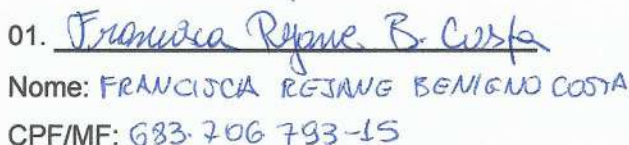 01. Francisca Rejane B. Costa
Nome: FRANCISCA REJANE BENIGNO COSTA
CPF/MF: 683.706 793-15